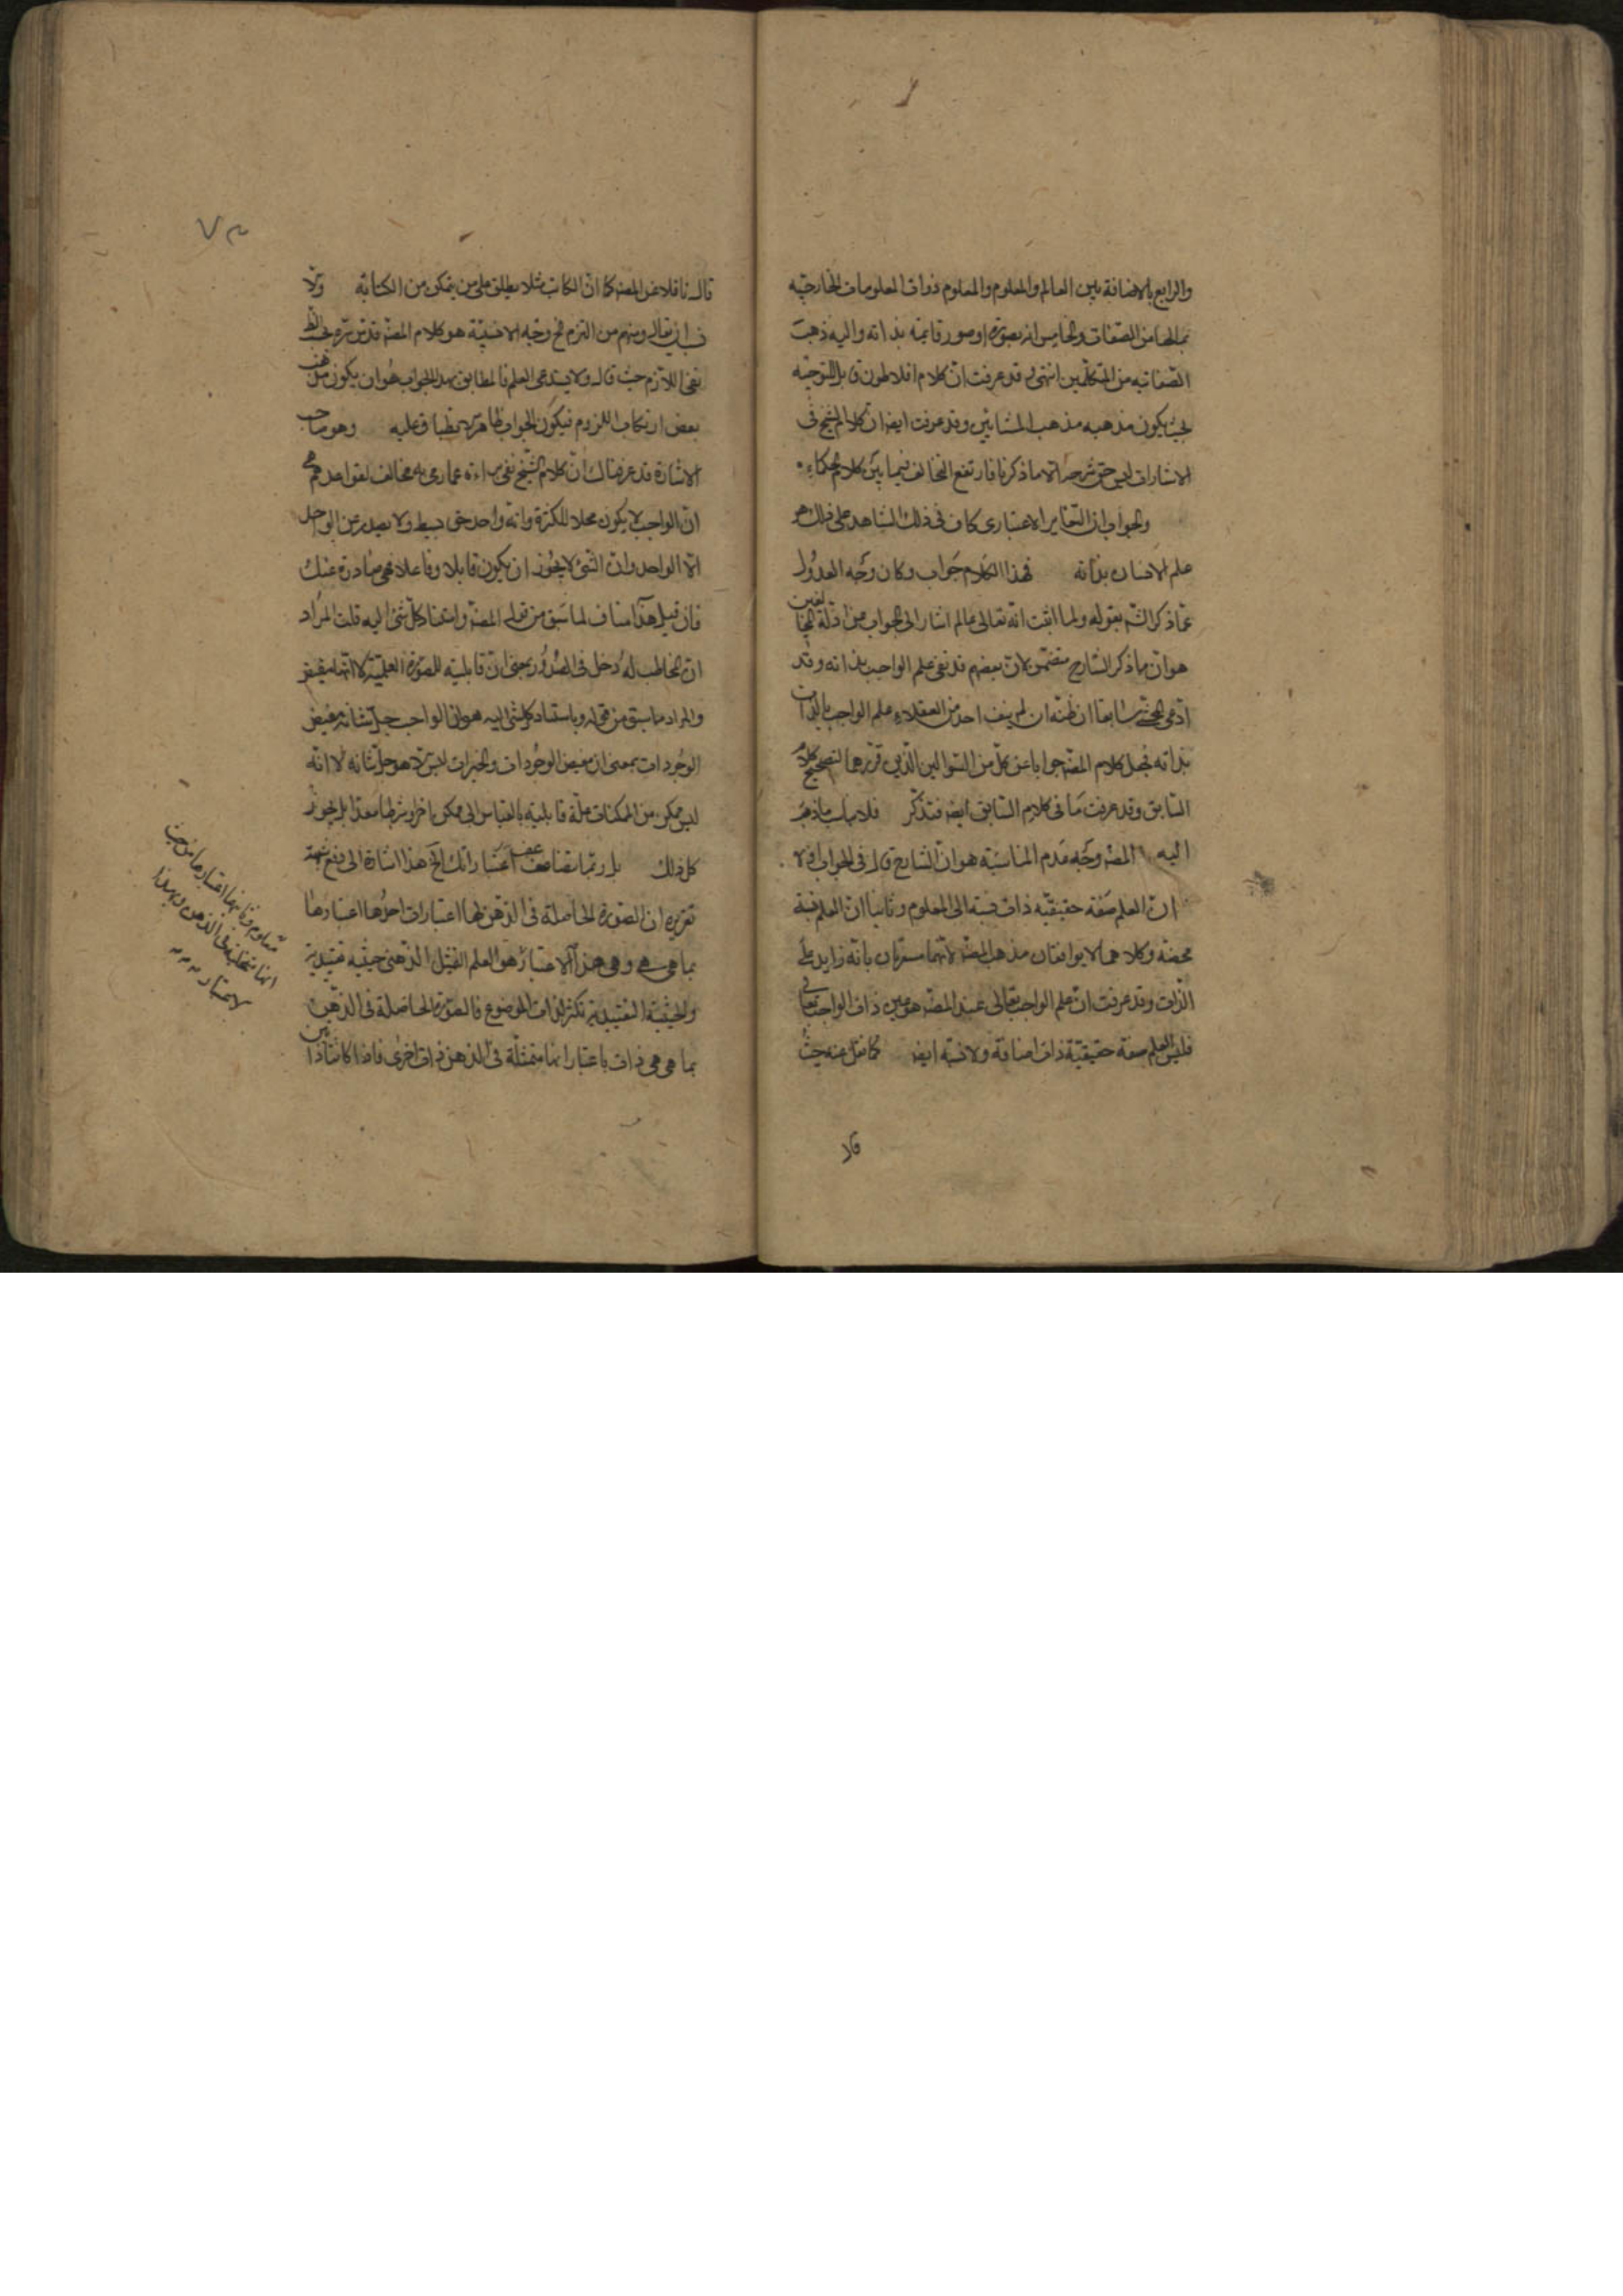 والرابع بالاضافة بين العالم والمعلوم والمعلوم ذوات المعلومات الخارجية
بمالها من الصفات والخامس انه بصورة او صور قايمة بذاته واليه ذهبت
الصفاتية من المتكلمين انتهى وقد عرفت ان كلام افلاطون قابل للتوجيه
بحيث يكون مذهبه مذهب المشائين وقد عرفت ايضا ان كلام الشيخ في
الاشارات ليس حق شرحه الا ما ذكرنا فارتفع التخالف فيما بين كلام الحكماء
والجواب ان التغاير الاعتبارى كاف في ذلك الشاهد على ذلك هو
علم الانسان بذاته فهذا الكلام جواب وكان وجه العدول
عما ذكر الشه بقوله ولما اثبت انه تعالى عالم اشار الى الجواب عن ادلة المخالفين
هو ان ما ذكر الشارح متضمن لان بعضهم قد نفى علم الواجب بذاته وقد
ادعى المحشى سابقا ان ظنه ان لم ينف احد من العقلاء علم الواجب بالذات
بذاته فجعل كلام المصه جوابا عن كل من السؤالين الذين قررهما لتصحيح كلام
السابق وقد عرفت ما في كلام السابق ايضا فتذكر فلا يناسب ما ذهب
اليه المصه وجه عدم المناسبة هو ان الشارح قال في الجواب اولا
ان العلم صفة حقيقية ذات نسبة الى المعلوم وثانيا ان العلم نسبة
محضة وكلاهما لا يوافقان مذهب المصه لانهما مستقران بانه زايد على
الذات وقد عرفت ان علم الواجب تعالى عند المصه هو عين ذات الواجب تعالى
فليس العلم صفة حقيقية ذات اضافة ولا نسبة ايضا كما نقل عنه حيث
قال
قال ناقلا عن المصه كما ان الكاتب مثلا يطلق على من يتمكن من الكتابة ولا
ان يقال ومنهم من التزم الخ وجه الانسبية هو كلام المصه قدس سره بحسب الظ
نفى اللازم حيث قال ولا يستدعى العلم فالمطابق بهذا الجواب هو ان يكون مذهب
بعض ارتكاب اللزوم فيكون الجواب ظاهرا منطبقا عليه وهو صاحب
الاشارة قد عرفناك ان كلام الشيخ نفى براءة عما رمى به مخالف لقواعدهم هى
ان الواجب لا يكون محلا للكثرة وانه واحد حق بسيط ولا يصدر عن الواحد
الا الواحد وان الشئ لا يجوز ان يكون قابلا وفاعلا فهى صادرة عنك
فان قيل هذا مناف لما سبق من قول المصه واستناد كل شئ اليه قلت المراد
ان المخاطب له دخل في الصدور بمعنى ان قابليته للصورة العلمية لا انها مفيض
والمراد ما سبق من قوله وباستناد كل شئ اليه هو ان الواجب جل شانه مفيض
الوجودات بمعنى ان مفيض الوجودات والخيرات ليس الا هو جل شانه لا انه
ليس ممكن من الممكنات علة قابلية بالقياس الى ممكن اخر او شرطا معدا بل يجوز
كل ذلك بل ربما تضاعف اعتباراتك الخ هذا اشارة الى دفع شبهة
تقريره ان الصورة الحاصلة في الذهن لها اعتبارات احدها اعتبارها
بما هى هى وهى هذا الاعتبار هو العلم التمثل الذهنى حيثية تقييدية
والحيثية التقييدية تكثر لذات الموضوع فالصورة الحاصلة في الذهن
بما هى هى ذات باعتبار انها متمثلة في الذهن ذات اخرى فاذا كانتا ذاتين
معلوم وثانيها اعتبارها من حيث
انها متحلية في الذهن وبهذا
الاعتبار